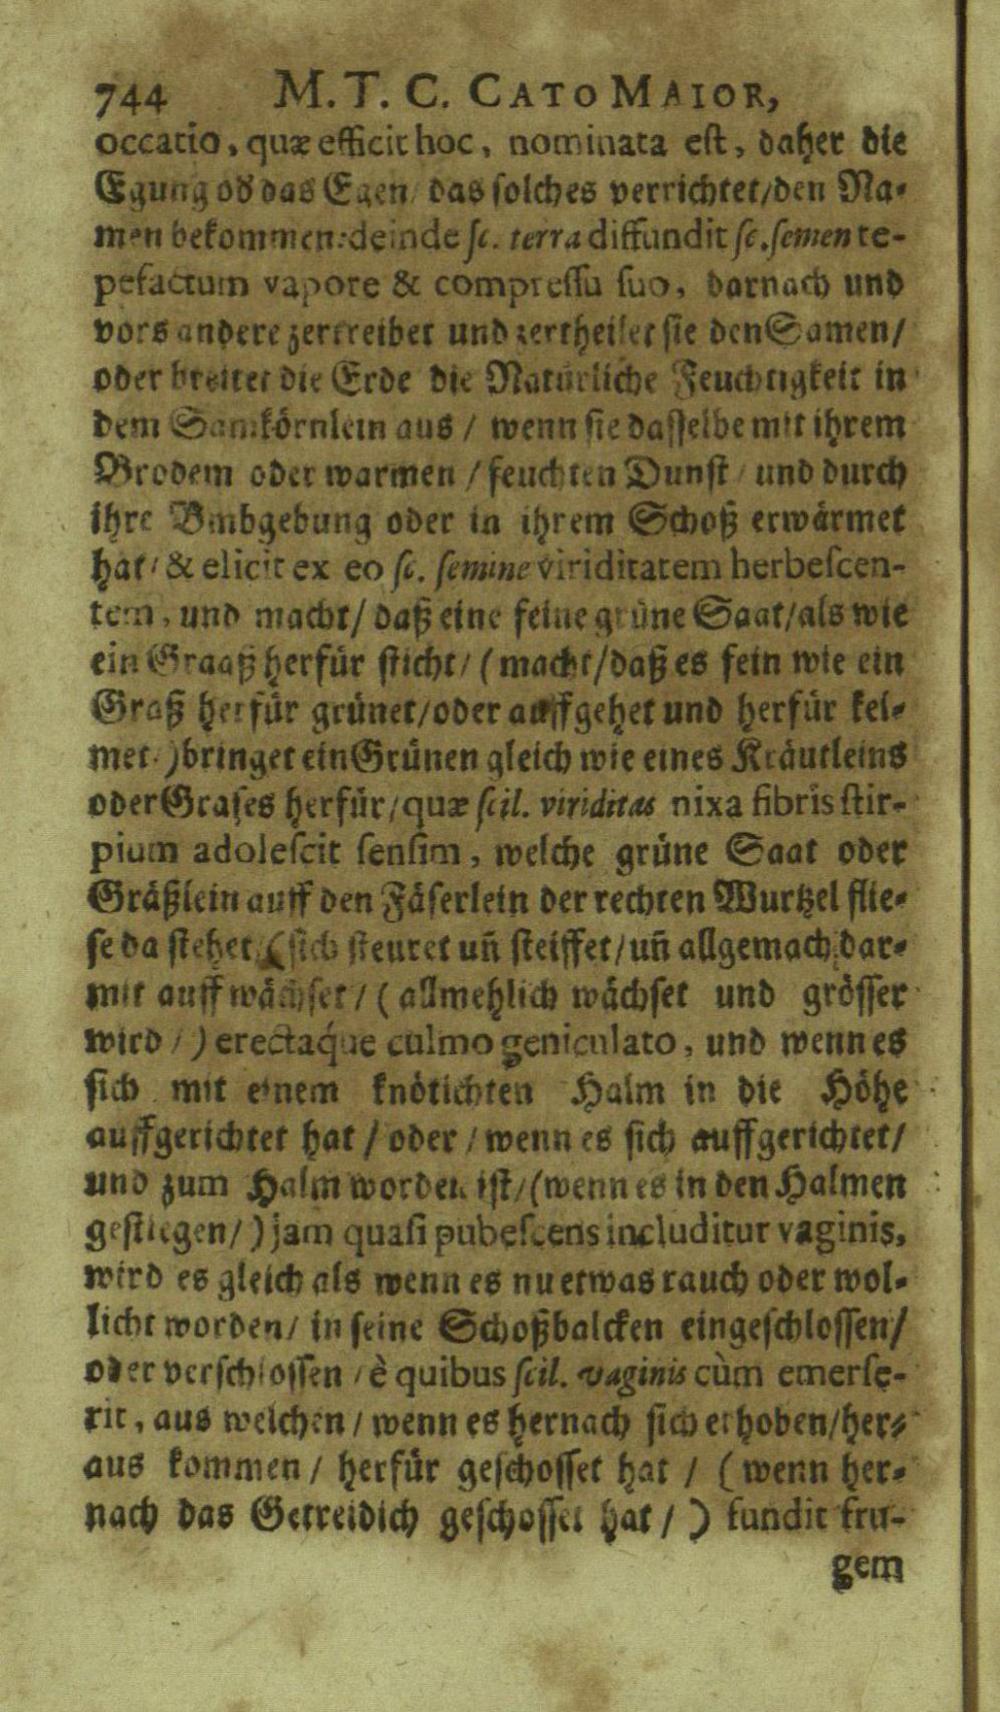 744 M. T. C. CATO MAIOR,
occatio, quæ efficit hoc, nominata est, daher die
Egung od das Egen/ das solches verrichtet/den Na-
men bekommen: deinde sc. terra diffundit sc. semen te-
pefactum vapore & compressu suo, darnach und
vors andere zertreibet und zertheilet sie den Samen/
oder breitet die Erde die Natürliche Feuchtigkeit in
dem Samkörnlein aus / wenn sie dasselbe mit ihrem
Brodem oder warmen / feuchten Dunst / und durch
ihre Vmbgebung oder in ihrem Schoß erwärmet
hat/ & elicit ex eo sc. semine viriditatem herbescen-
tem, und macht/ daß eine feine grüne Saat/als wie
ein Graaß herfür sticht/ (macht/daß es fein wie ein
Graß herfür grünet/oder auffgehet und herfür kei-
met.) bringet ein Grünen gleich wie eines Kräutleins
oder Grases herfür/ quæ scil. viriditas nixa fibris stir-
pium adolescit sensim, welche grüne Saat oder
Gräßlein auff den Fäserlein der rechten Wurtzel flie-
se da stehet/ (sich steuret uñ steiffet/uñ allgemach dar-
mit auff wächset / (allmehlich wächset und grösser
wird /) erectaq́ue culmo geniculato, und wenn es
sich mit einem knötichten Halm in die Höhe
auffgerichtet hat / oder / wenn es sich auffgerichtet/
und zum Halm worden ist/(wenn es in den Halmen
gestiegen/) jam quasi pubescens includitur vaginis,
wird es gleich als wenn es nu etwas rauch oder wol-
licht worden/ in seine Schoßbalcken eingeschlossen/
oder verschlossen / è quibus scil. vaginis cùm emerse-
rit, aus welchen / wenn es hernach sich erhoben/her-
aus kommen / herfür geschosset hat / (wenn her-
nach das Getreidich geschosset hat /) fundit fru-
gem